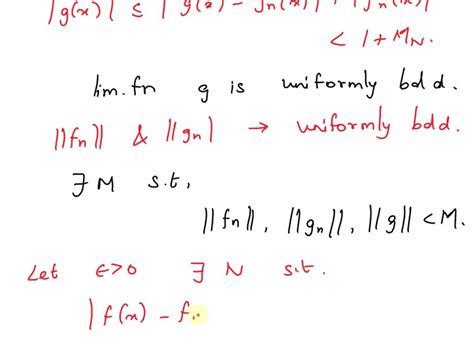 |g(x)| ≤ |g(x) - gn(x)| + |gn(x)|
< 1 + MN.
lim.fn g is uniformly bdd.
||fn|| & ||gn| → uniformly bdd.
∃ M s.t,
||fn||, ||gn||, ||g|| < M.
Let ϵ>0 ∃ N s.t.
|f(x) - f